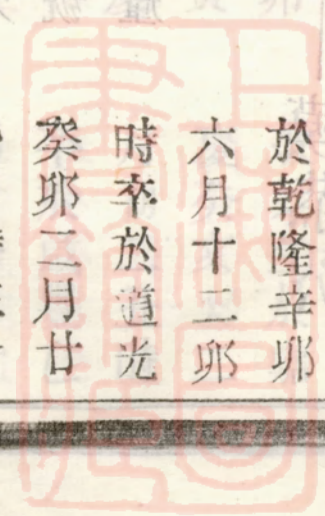 於乾隆辛卯
六月十二卯
時卒於道光
癸卯二月廿